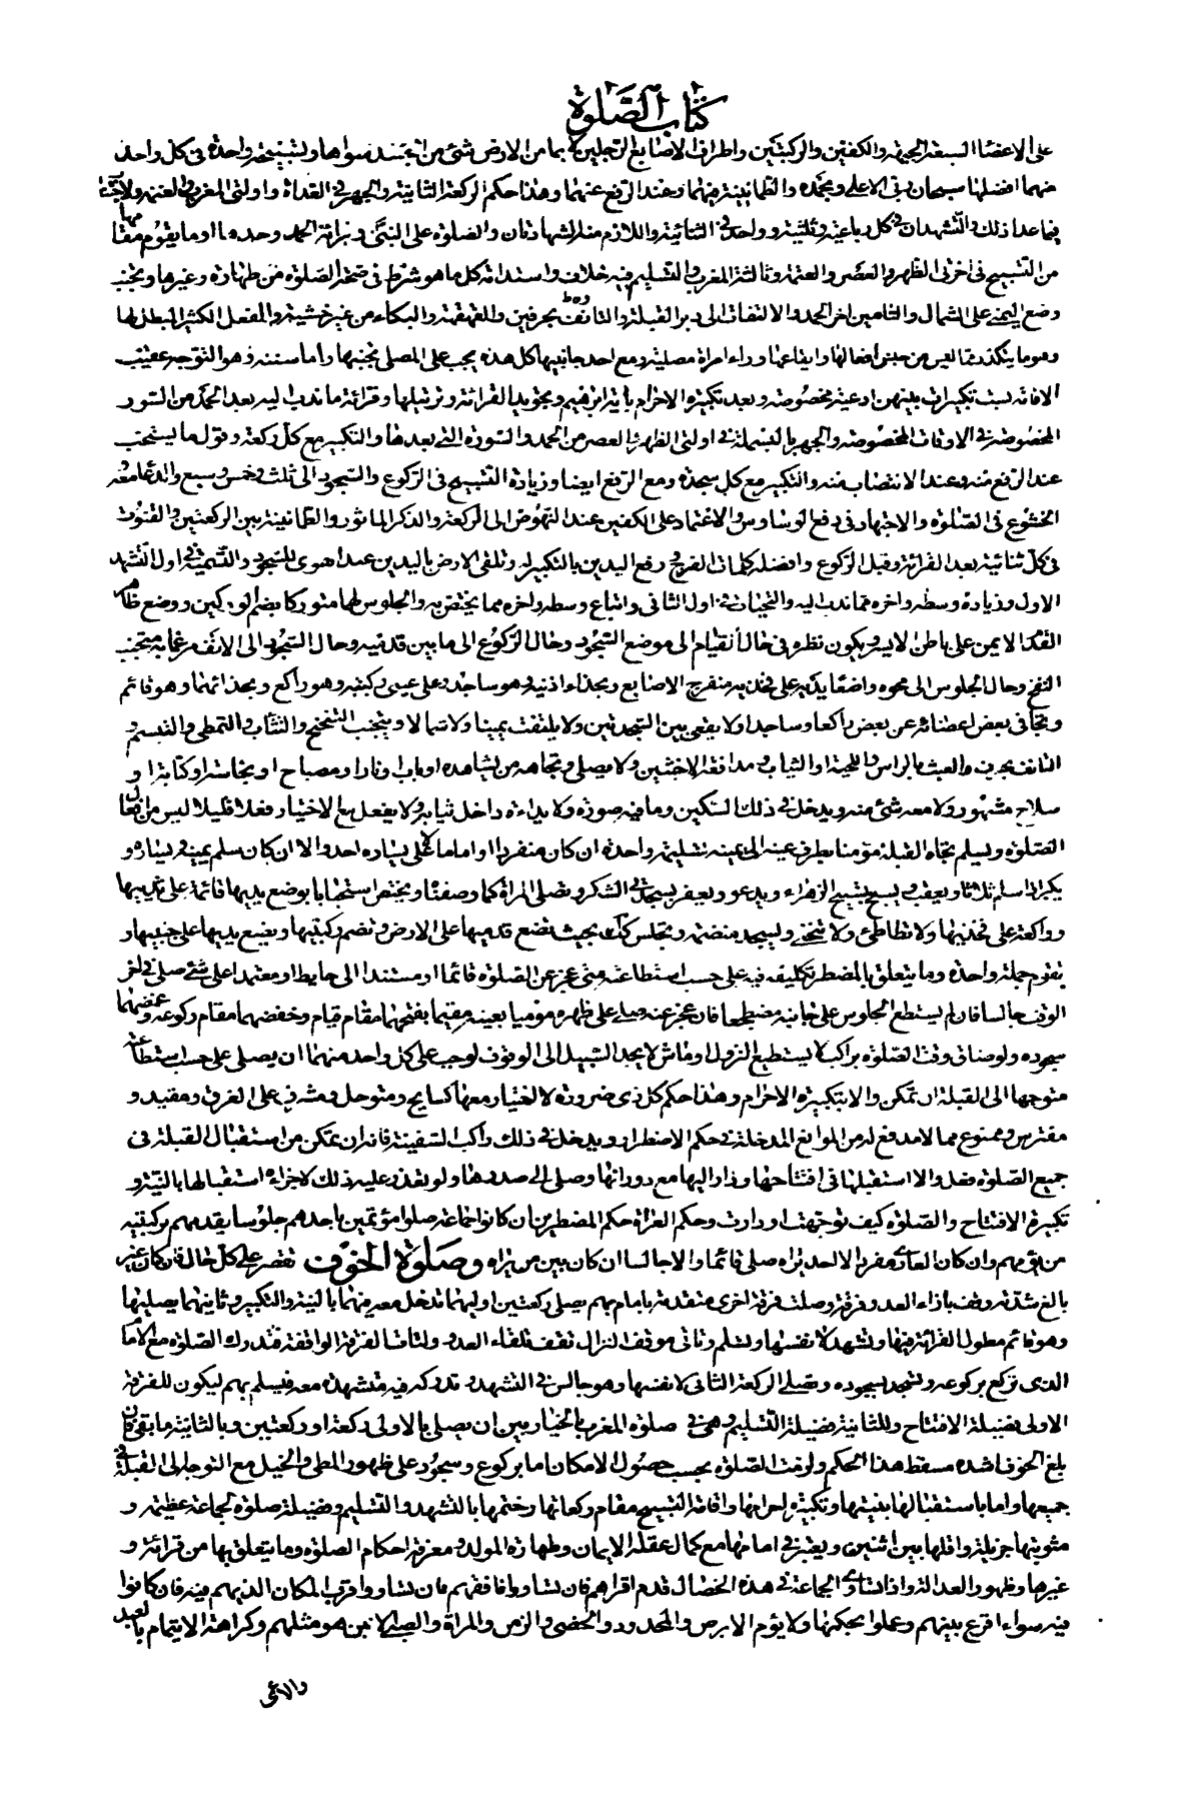 كتاب الصلوة
على الاعضاء السبعة الجبهة والكفين والركبتين واطراف الاصابع الرجلين بما من الارض شئ من الجسد سواها وتسبيحة واحدة فى كل واحد
منهما افضلها سبحان ربى الاعلى وبحمده والطمانينة فيهما وعند الرفع عنهما وهذا حكم الركعة الثانية والجهر فى الغداة واولتى المغرب والعتمة
فيما عدا ذلك والتشهدان فى كل رباعية وثلثية وواحد فى الثنائية واللازم منه الشهادتان والصلوة على النبى وقرائة الحمد وحدها او ما يقوم مقامها
من التسبيح فى اخرتى الظهر والعصر والعتمة وثالثة المغرب والتسليم فيه خلاف واستدامة كل ما هو شرط فى صحة الصلوة من طهارة وغيرها وتجنب
وضع اليمنى على الشمال والتامين اخر الحمد والالتفات الى دبر القبلة والتافف بحرفين والقهقهة والبكاء من غير خشية والفعل الكثير المبطل لها
وهو ما ليس من جنس افعالها وايقاعها وراء امراة مصلية ومع احد جانبيها كل هذه يجب على المصلى تجنبها واما سننه فهو التوجه عقيب
الاقامة بست تكبيرات بينهن ادعية مخصوصة وبعد تكبيرة الاحرام باية ابرهيم وتجويد القرائة وترتيلها وقرائة ما ندب اليه بعد الحمد من السور
المخصوصة فى الاوقات المخصوصة والجهر بالبسملة فى اولتى الظهر والعصر من الحمد والسورة التى بعدها والتكبير مع كل ركعة وقول ما يستحب
عند الرفع منه وعند الانتصاب منه والتكبير مع كل سجدة ومع الرفع ايضا وزيادة التسبيح فى الركوع والسجود الى ثلث وخمس وسبع والدعا معه
الخشوع فى الصلوة والاجتهاد فى دفع الوساوس والاعتماد على الكفين عند النهوض الى الركعة والذكر الماثور والطمانينة بين الركعتين والقنوت
فى كل ثنائية بعد القرائة وقبل الركوع وافضله كلمات الفرج ورفع اليدين بالتكبير له وتلقى الارض باليدين عند اهوى للسجود والتسمية فى اول التشهد
الاول وزيادة وسطه واخره مما ندب اليه والتحيات فى اول الثانى واتباع وسطه واخره مما يختص به والجلوس لهما متوركا بضم الوركين ووضع ظاهر
القدم الايمن على باطن الايسر ويكون نظره فى حال القيام الى موضع السجود وحال الركوع الى ما بين قدميه وحال السجود الى الانف مرغما به يتجنب
النفخ وحال الجلوس الى حجره واضعا يديه على فخذيه منفرج الاصابع وبحذاء اذنيه وهو ساجد وعلى عينى ركبتيه وهو راكع وبحذائهما وهو قائم
ويجافى بعض اعضائه عن بعض راكعا وساجدا ولا يقعى بين السجدتين ولا يلتفت يمينا ولا شمالا ويتجنب التنخع والتثأب والتمطى والتبسم و
التافف بحرف والعبث بالراس واللحية او الثياب ومدافعة الاخبثين ولا يصلى وتجاهه من يشاهده او باب او نار او مصباح او نجاسة او كتابة او
سلاح مشهور ولا معه شئ منه ويدخل فى ذلك السكين وما فيه صورة ولا يداه داخل ثيابه ولا يفعل مع الاختيار فعلا قليلا ليس من افعال
الصلوة ويسلم تجاه القبلة مؤمنا بطرف عينه الى يمينه تسليمة واحدة ان كان منفردا او اماما على يساره احد والا ان كان سلم يمينه ويساره و
يكبر اذا سلم ثلاثا ويعقب ويسبح تسبيح الزهراء ويدعو ويعفر بسجدتى الشكر وتصلى المراة كما وصفنا ويختص استحبابا بوضع يديها قائمة على ثدييها
وراكعة على فخذيها ولا تطاطئ ولا تنحنى وتسجد منضمة وتجلس كذلك بحيث تضع قدميها على الارض وتضم ركبتيها وتضع يديها على جنبيها و
تقوم جملة واحدة وما يتعلق بالمضطر تكليفه فيه على حسب استطاعته متى عجز عن الصلوة قائما او مستندا الى حايط او معتمدا على شئ صلى فى اخر
الوقت جالسا فان لم يستطع الجلوس على جانبه مضطجعا فان عجز عنه صلى على ظهره مؤميا بعينه مقيما بفتحهما مقام قيام وخفضهما مقام ركوعه وغمضهما
سجوده ولو ضاق وقت الصلوة براكب لا يستطيع النزول او ماش لا يجد السبيل الى الوقوف لوجب على كل واحد منهما ان يصلى على حسب استطاعته
متوجها الى القبلة ان تمكن والا بتكبيرة الاحرام وهذا حكم كل ذى ضرورة لا اختيار معها كسابح ومتوحل ومشرف على الغرق ومقيد و
مفترس وممنوع مما لا مدفع له من الموانع المدخلة فى حكم الاضطرار ويدخل فى ذلك راكب السفينة فانه ان تمكن من استقبال القبلة فى
جميع الصلوة فعل والا استقبلها فى افتتاحها ودار اليها مع دورانها وصلى الى صدرها ولو تعذر عليه ذلك لاجزاه استقبالها بالنية و
تكبيرة الافتتاح والصلوة كيف توجهت او دارت وحكم العراة حكم المضطرين ان كانوا جماعة صلوا مؤتمين باحدهم جلوسا يقدمهم بركبتيه
من يؤمهم وان كان العارى مفردا لا احد يراه صلى قائما والا جالسا ان كان بين من يراه وصلوة الخوف تقصر على كل حال فان كان غير
بالغ شدته وقف بازاء العدو فرقة وصلت فرقة اخرى متقدمة بامام بهم يصلى ركعتين اوليهما تدخل معه فيها بالنية والتكبير وثانيتهما يصليها
وهو قائم مطول القرائة فيها وتشهد لانفسها وتسلم وتاتى موقف النزال تقف تلقاء العدو ولتات الفرقة الواقفة فتدرك الصلوة مع الامام
الذى تركع بركوعه وتسجد بسجوده وتصلى الركعة الثانى لانفسها وهو جالس فى التشهد وتدركه فيه فتشهده معه فيسلم بهم ليكون للفرقة
الاولى فضيلة الافتتاح وللثانية فضيلة التسليم وهو فى صلوة المغرب بالخيار بين ان يصلى بالاولى ركعة او ركعتين وبالثانية ما بقى فان
بلغ الخوف اشده سقط هذا الحكم ولوقت الصلوة بحسب حصول الامكان اما بركوع وسجود على ظهور المطى والخيل مع التوجه الى القبلة فى
جميعها واما باستقبالها بنيتها وتكبيرة احرامها واقامة التسبيح مقام ركعاتها وختمها بالتشهد والتسليم وفضيلة صلوة الجماعة عظيمة و
مثوبتها جزيلة واقلها بين اثنين ويعتبر فى امامها مع كمال عقله الايمان وطهارة المولد ومعرفة احكام الصلوة وما يتعلق بها من قرائة و
غيرها وظهور العدالة واذا تساوى الجماعة فى هذه الخصال قدم اقراهم فان تساووا فافقههم فان تساووا قرب المكان الذى هم فيه فان كانوا
فيه سواء اقرع بينهم وعملوا بحكمها ولا يؤم الابرص والمحدود والخصى والزمن والمراة والصبى الا بمن هو مثلهم وكراهة الايتمام بالعبد
والاعمى